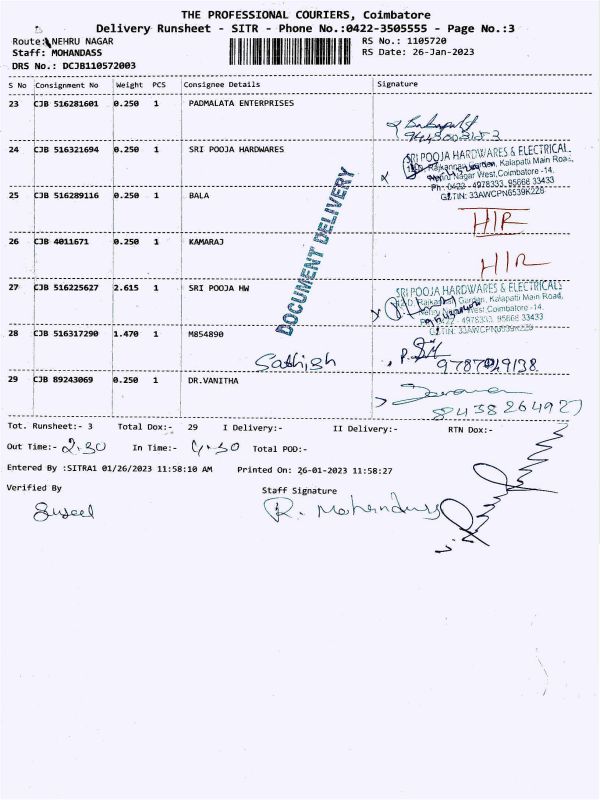 THE PROFESSIONAL COURIERS, Coimbatore
Delivery Runsheet - SITR - Phone No.:0422-3505555 - Page No.:3
Route: NEHRU NAGAR
RS No.: 1105720
Staff: MOHANDASS
RS Date: 26-Jan-2023
DRS No.: DCJB110572003
S No Consignment No Weight PCS Consignee Details Signature
23 CJB 516281601 0.250 1 PADMALATA ENTERPRISES
24 CJB 516321694 0.250 1 SRI POOJA HARDWARES
SRI POOJA HARDWARES & ELECTRICAL
Kalapatti Main Road,
Nehru Nagar West, Coimbatore -14.
Ph: 0422 - 4978333, 95666 33433
GSTIN: 33AWCPN6539K2Z6
25 CJB 516289116 0.250 1 BALA
HIR
26 CJB 4011671 0.250 1 KAMARAJ
HIR
DOCUMENT DELIVERY
27 CJB 516225627 2.615 1 SRI POOJA HW
SRI POOJA HARDWARES & ELECTRICALS
Garden, Kalapatti Main Road,
West, Coimbatore -14.
4978333, 95666 33433
28 CJB 516317290 1.470 1 M854890
Sathish
29 CJB 89243069 0.250 1 DR.VANITHA
8438264927
Tot. Runsheet:- 3 Total Dox:- 29 I Delivery:- II Delivery:- RTN Dox:-
Out Time:- 2.30 In Time:- Total POD:-
Entered By :SITRA1 01/26/2023 11:58:10 AM Printed On: 26-01-2023 11:58:27
Verified By
Staff Signature
R. Mohandass